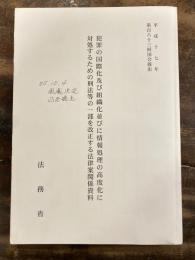 平成十七年
第百六十三回国会提出
犯罪の国際化及び組織化並びに情報処理の高度化に
対処するための刑法等の一部を改正する法律案関係資料
05.10.4
閣議決定
法務省